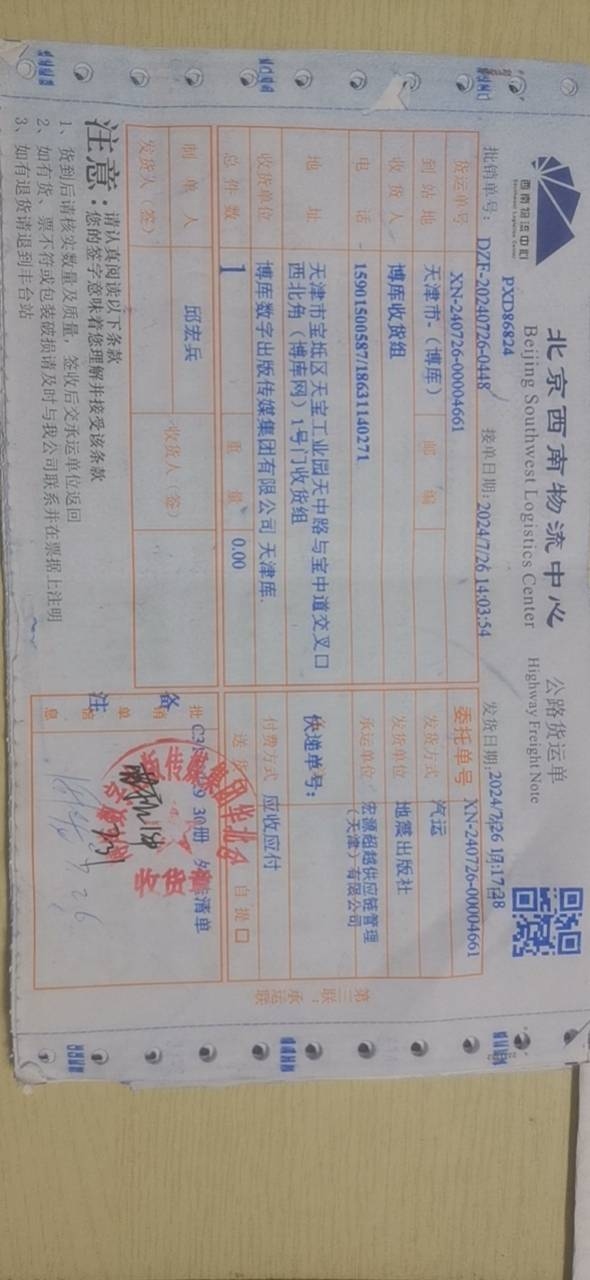 西南物流中心
Southwest Logistics Center
北京西南物流中心 公路货运单
Beijing Southwest Logistics Center Highway Freight Note
PXD86824
批销单号: DZF-20240726-0448 接单日期: 2024/7/26 14:03:54 发货日期: 2024/7/26 17:17:28
货运单号 XN-240726-00004661 委托单号 XN-240726-00004661
到站地 天津市-（博库） 邮编 发货方式 汽运
收货人 博库收货组 发货单位 地震出版社
电话 15901500587/18631140271 承运单位 宏源超越供应链管理
（天津）有限公司
地址 天津市宝坻区天宝工业园天中路与宝中道交叉口
西北角（博库网）1号门收货组
快递单号:
收货单位 博库数字出版传媒集团有限公司 天津库. 付费方式 应收应付
总件数 1 重量 0.00 送货 自提口
制单人 邱宏兵 收货人（签）
发货人（签）
备注
批销单信息
30册
清单
收货专用章
7.26
注意: 请认真阅读以下条款
您的签字意味着您理解并接受该条款
1、货到后请核实数量及质量，签收后交承运单位返回
2、如有货 票不符或包装破损请及时与我公司联系并在票据上注明
3、如有退货请退到丰台站
第三联:承运联